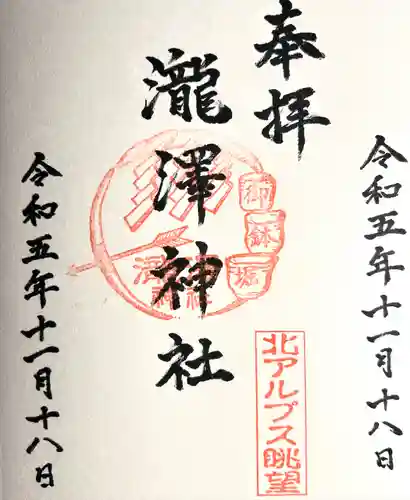 奉拝
令和五年十一月十八日
瀧澤神社
御
鉢
堀
北アルプス眺望
令和五年十一月十八日